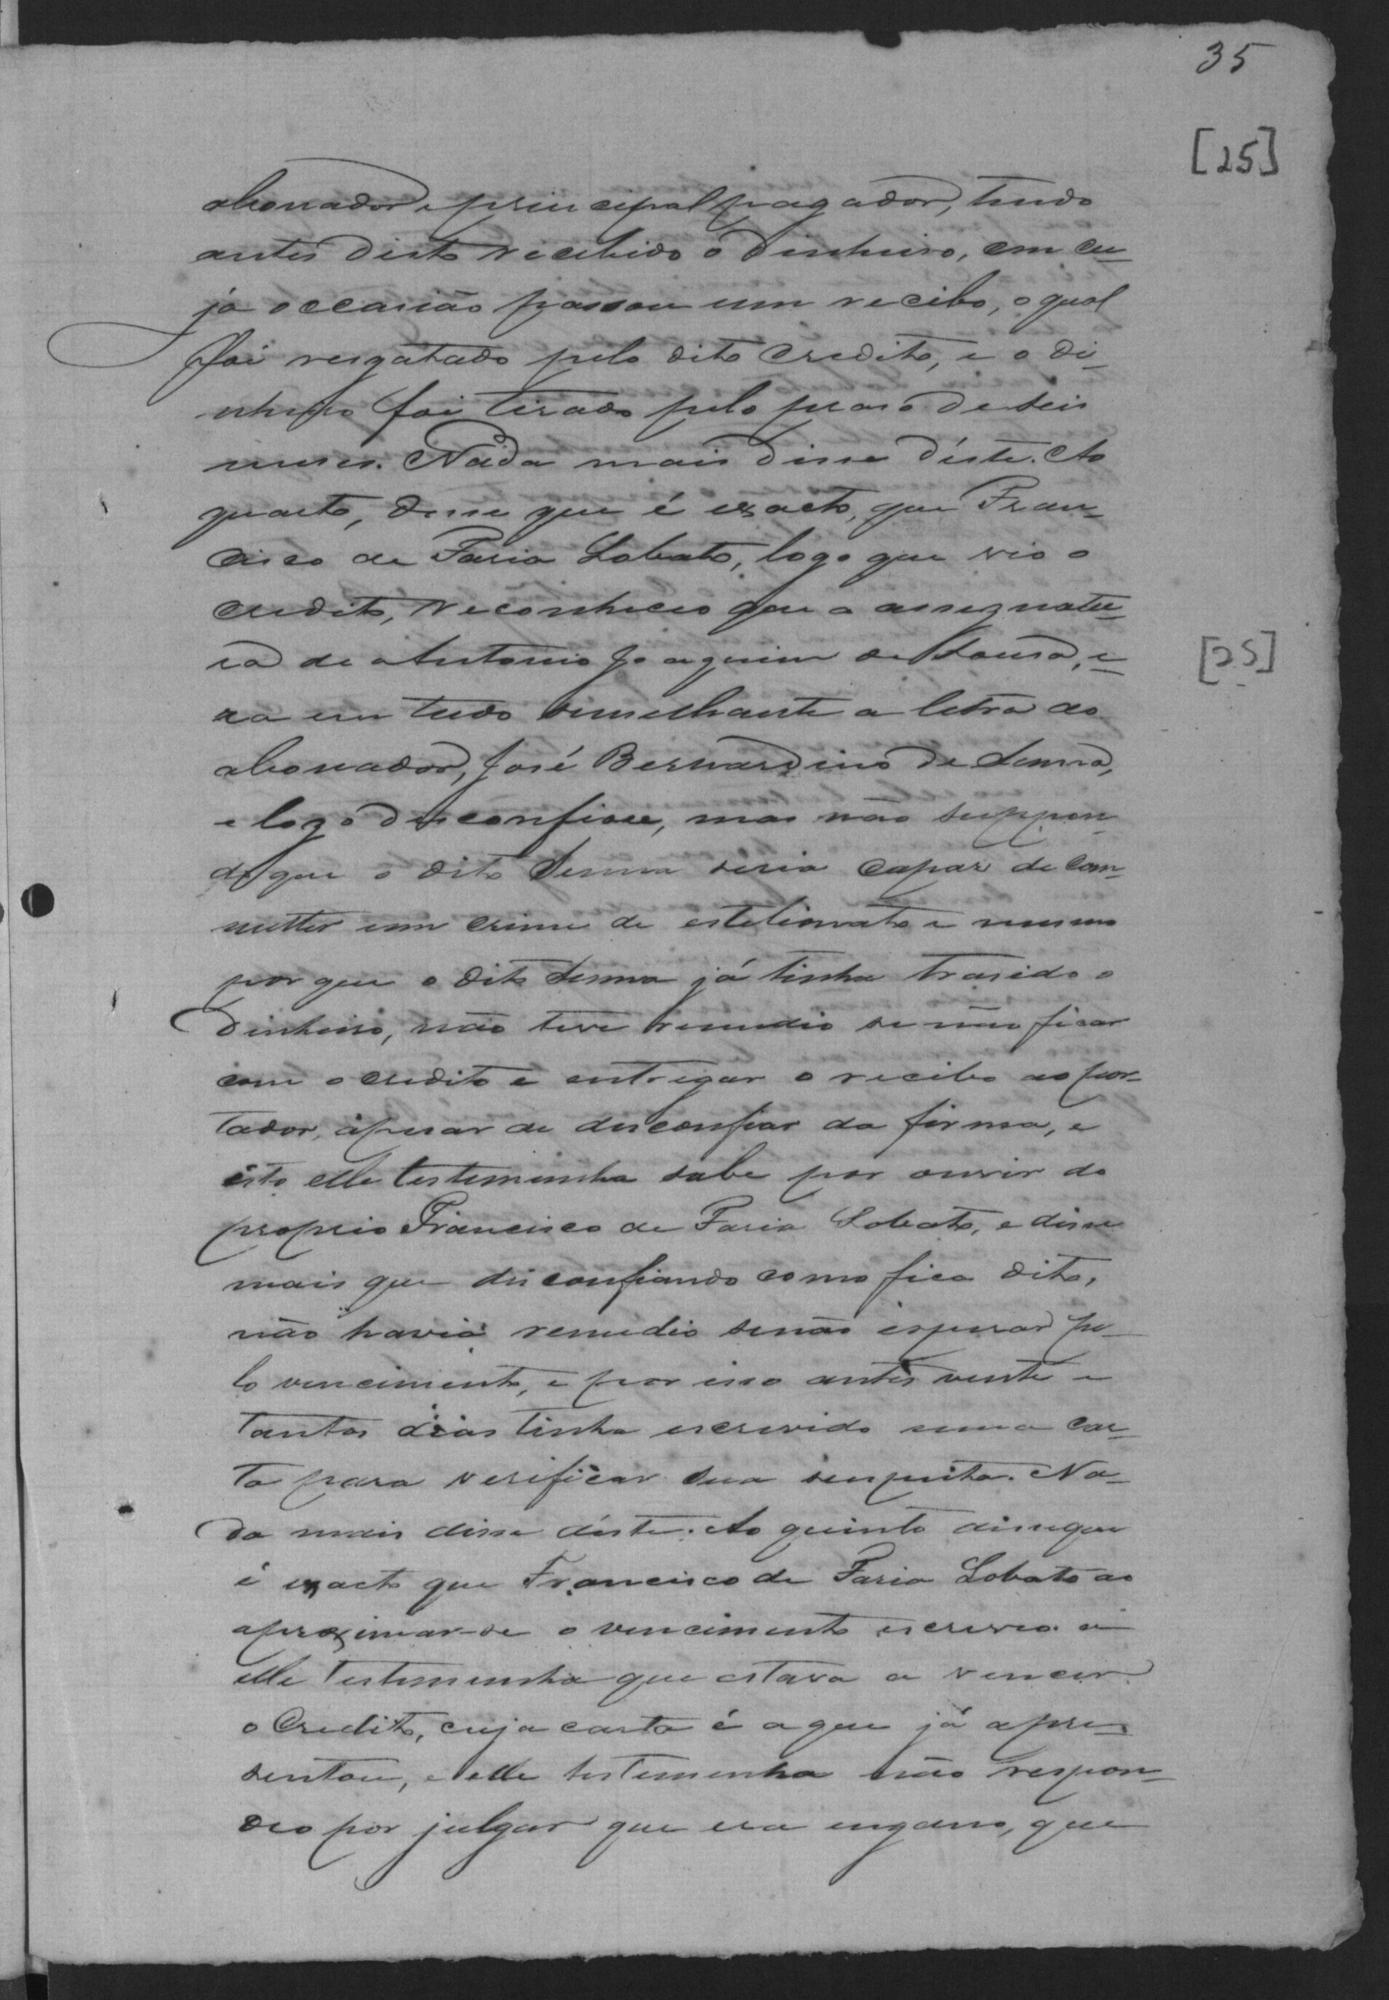 35
[25]
abonador e principal pagador, tendo
antes disto recebido o dinheiro, em cu-
ja occasião passou um recibo, o qual
foi resgatado pelo dito credito, e o di-
nheiro foi tirado pelo praso de seis
meses. Nada mais disse déste. Ao
quarto, disse que é exacto, que Fran-
cisco de Faria Lobato, logo que vio o
credito, reconheceo que a assignatu-
ra de Antonio Joaquim de Sousa, e-
ra em tudo semelhante a letra do
abonador, José Bernardino de Senna,
e logo desconfiou, mas não suppon-
do que o dito Senna seria capaz de com-
metter um crime de estelionato e mesmo
por que o dito Senna já tinha trasido o
dinheiro, não teve remedio se não ficar
com o credito e entregar o recibo ao por-
tador, apesar de desconfiar da firma, e
isto elle testemunha sabe por ouvir do
proprio Francisco de Faria Lobato, e disse
mais que desconfiando como fica dito,
não havia remedio senão esperar pe-
lo vencimento, e por isso antes vinte e
tantos dias tinha escrevido uma car-
ta para verificar sua suspeita. Na-
da mais disse déste. Ao quinto disse que
é exacto que Francisco de Faria Lobato ao
aproximar-se o vencimento escreveo a
elle testemunha que estava a vencer
o Credito, cuja carta é a que já apre-
sentou, e elle testemunha não respon-
deo por julgar que era engano, que
[25]